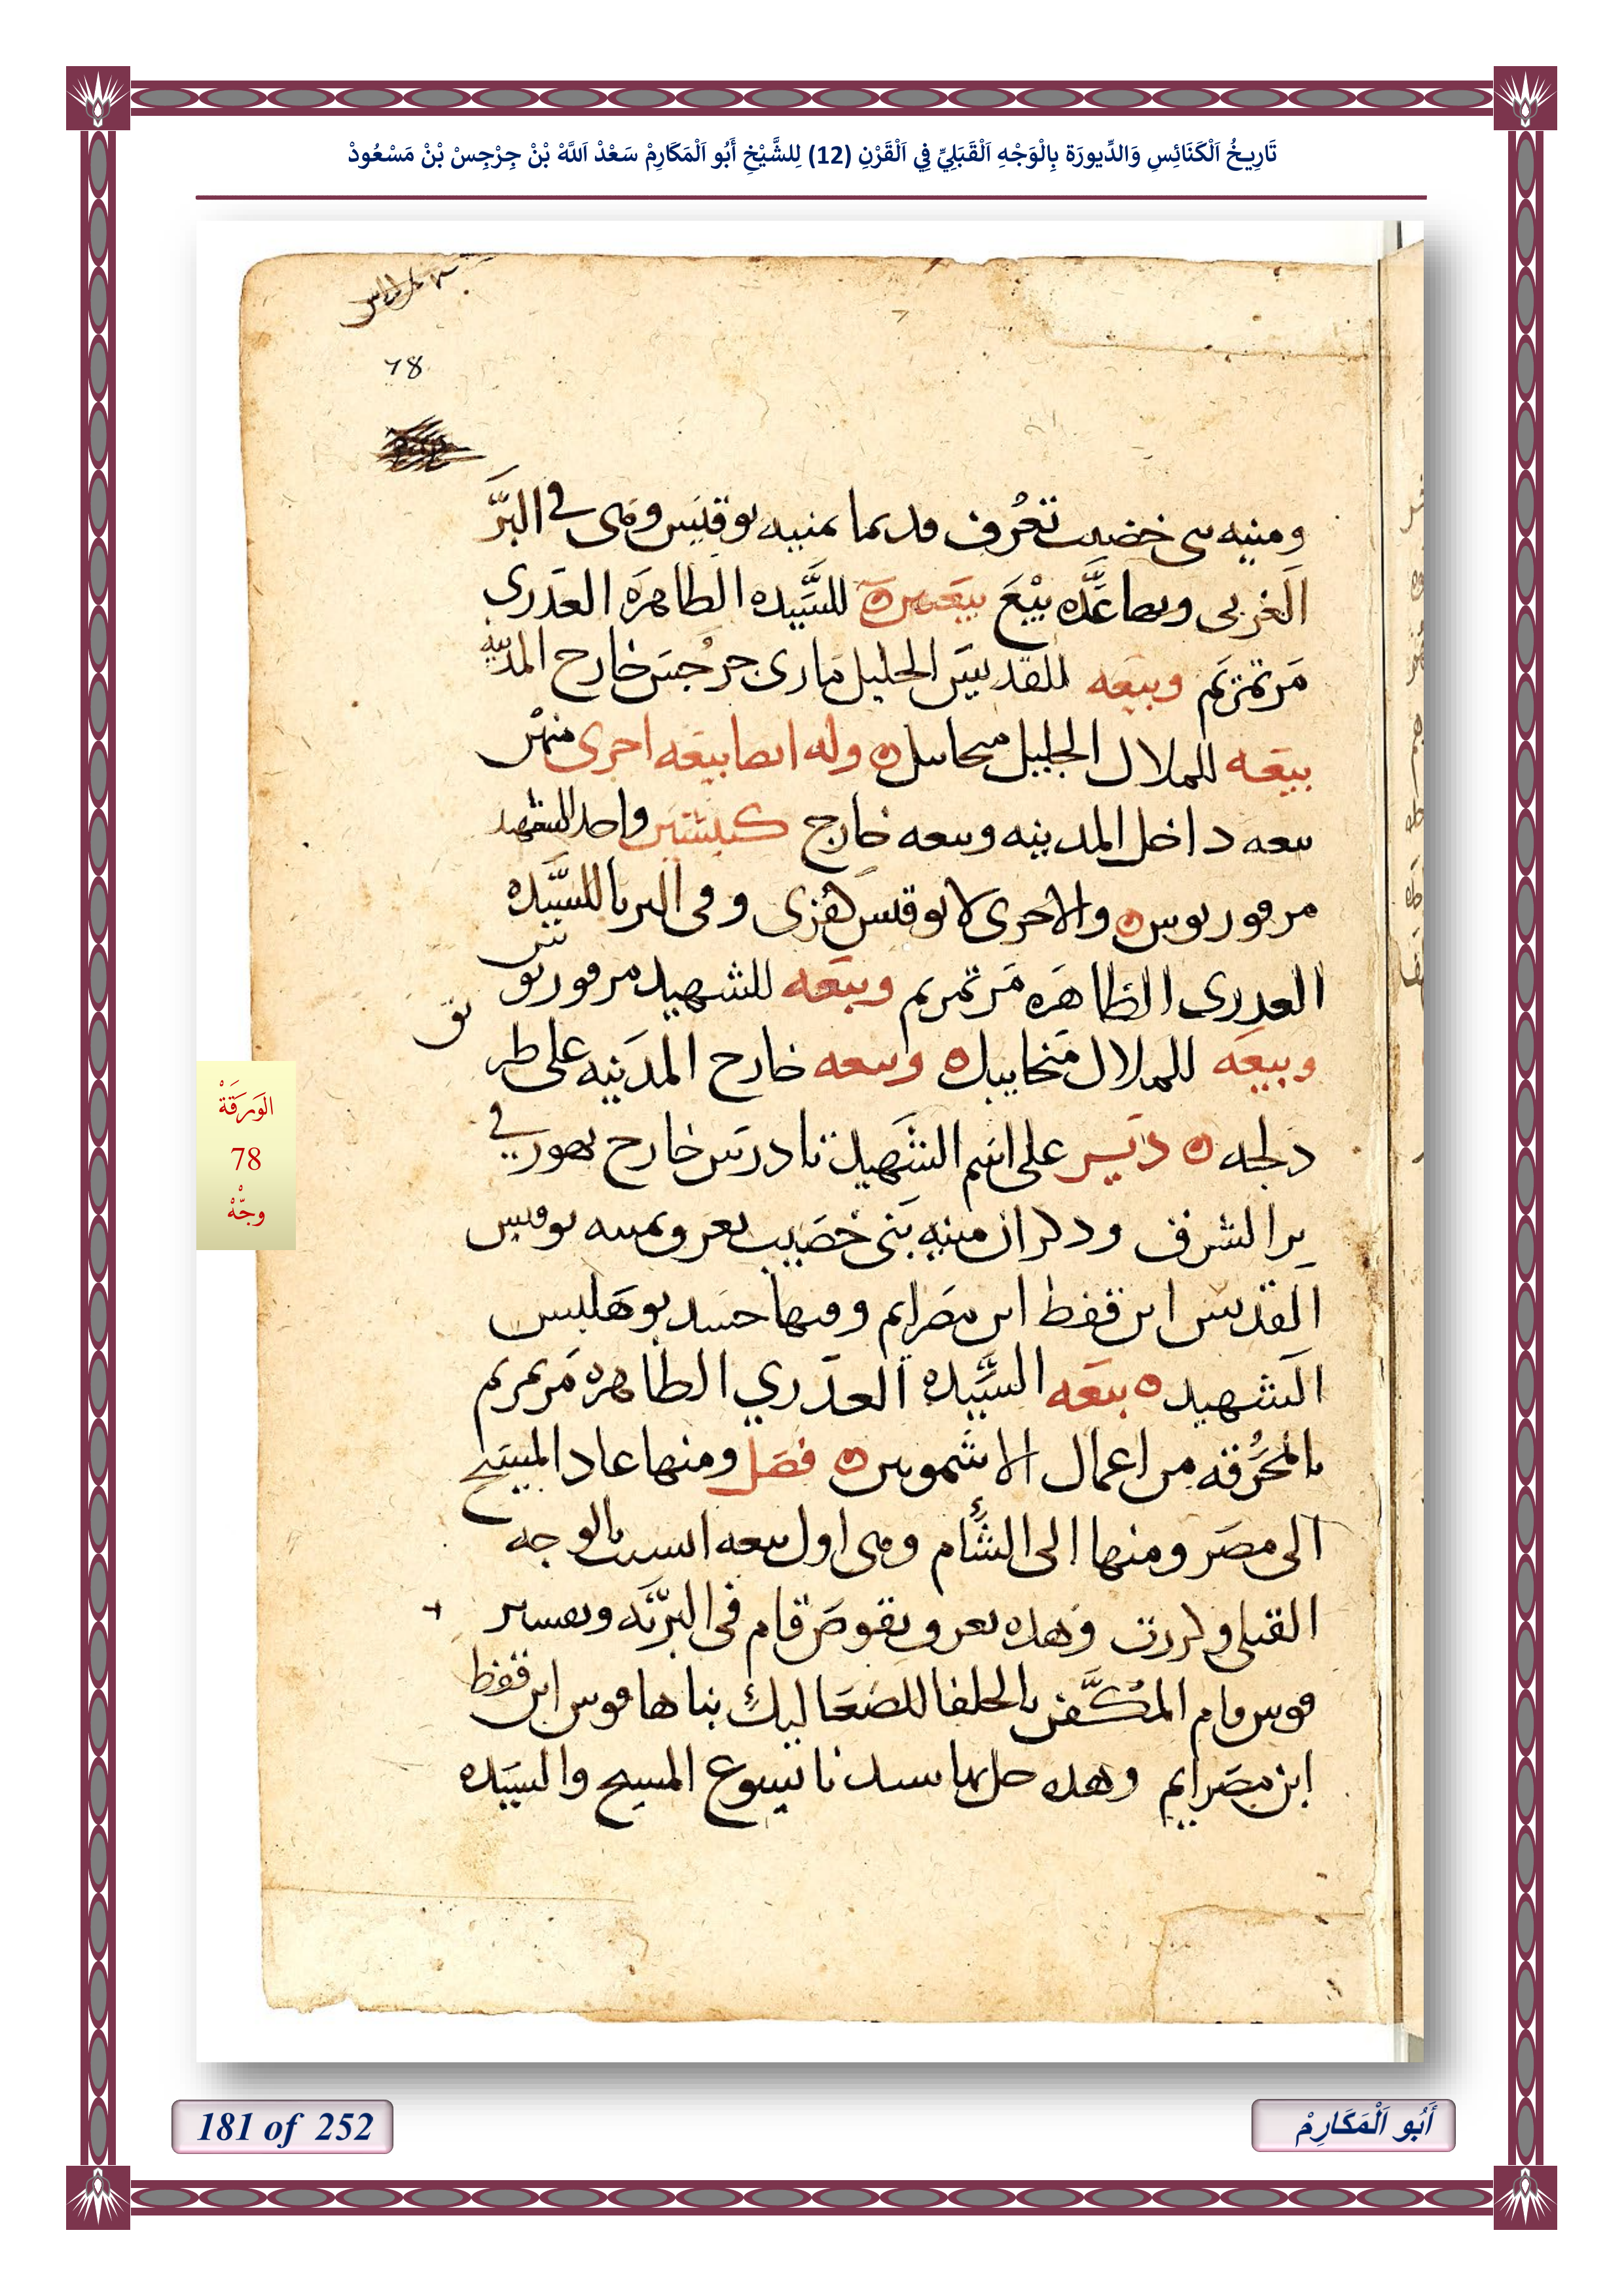 تَارِيخُ اَلْكَنَائِسِ وَالدِّيورَة بِالْوَجْهِ اَلْقَبَلِيِّ فِي اَلْقَرْنِ (12) لِلشَّيْخِ أَبُو اَلْمَكَارِمْ سَعْدْ اَللَّهْ بْنْ جِرْجِسْ بْنْ مَسْعُودْ
78
ومنيه بنى خضيب تعرف قديما بمنيه بوقيس وهى فى البر
الغربى وبها عده بيع بيعتين للسيده الطاهره العدرى
مرتمريم وبيعه للقديس الجليل مارى جرجس خارج المدينه
بيعه للملاك الجليل ميخاييل وله ايضا بيعه اخرى منهن
بيعه داخل المدينه وبيعه خارج كنيستين واحد للشهيد
مرقوريوس والاخرى لابوقيس وفى البربا للسيده
العدرى الطاهره مرتمريم وبيعه للشهيد مرقوريوس
وبيعه للملاك ميخاييل وبيعه خارج المدينه على طريق
دلجه دير على اسم الشهيد تادرس خارج بهور فى
بر الشرق ودكر ان منيه بنى خصيب تعرف بمنيه بوقيس
القديس ابن قفط ابن مصرايم وفيها جسد بوهلبس
الشهيد بيعه السيده العدري الطاهره مريم
بالمحرقه من اعمال الاشمونين فصل ومنها عاد المسيح
الى مصر ومنها الى الشام وهى اول بيعه انسيت بالوجه
القبلى وكررت وهده تعرف بقوص قام فى البريه وتفسير
قوس قام المكفن بالحلفا للصعاليك بناها قوس ابن قفط
ابن مصرايم وهده حل بها سيدنا يسوع المسيح والسيده
الوَرَقَةْ
78
وجّهْ
181 of 252
أَبُو اَلْمَكَارِمْ